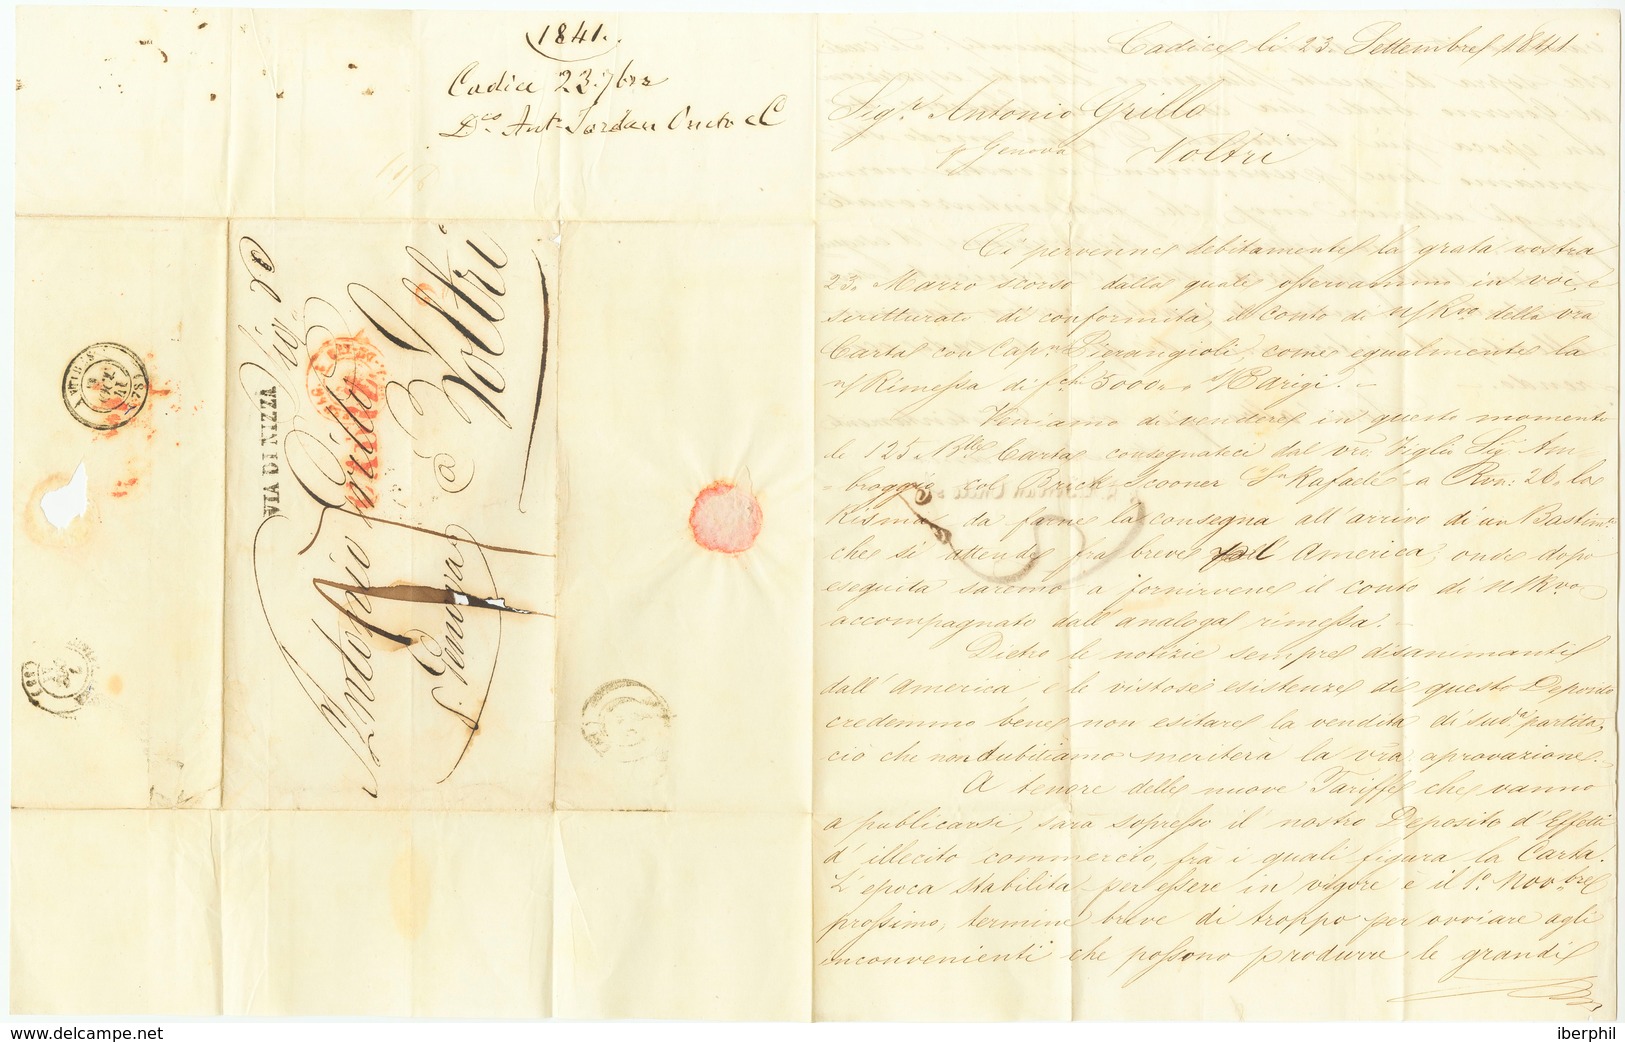 1841.
Cadice 23 7bre
D.co Ant.o Jordan Oneto e C
Sig.r D.n
Antonio Grillo
p. Genova
a Voltri
VIA DI NIZZA
Cadice li 23 Settembre 1841
Sig.r Antonio Grillo
p Genova Voltri
Ci pervenne debitamente la grata vostra
23. Marzo scorso dalla quale osservammo in voi, e
scritturato di conformità, il conto di n/Rvo della vra
Carta con Cap.n Pierangioli, come egualmente la
n/Rimessa di fchi 5000 s/Parigi. -
Veniamo di vendere in questo momento
le 125 Blle Carta consegnateci dal vro Figlio Sig. Am-
-broggio col Brick Scooner Sn Rafaele a Rvn: 20. la
Risma da farne la consegna all'arrivo di un Bastim.to
che si attende fra breve pell America, onde dopo
eseguita saremo a fornirvene il conto di n/Rvo
accompagnato dall'analoga rimessa. -
Dietro le notizie sempre disanimanti
dall'America, e le vistose esistenze di questo Deposito
credemmo bene non esitare la vendita di sud.a partita,
ciò che non dubitiamo meriterà la vra aprovazione. -
A tenore delle nuove Tariffe che vanno
a publicarsi, sarà sopresso il nostro Deposito d'Effetti
d'illecito commercio, frà i quali figura la Carta.
L'epoca stabilita per essere in vigore è il 1.o Novbre
prossimo, termine breve di troppo per ovviare agli
inconvenienti che possono produrre le grandi
www.delcampe.net
iberphil